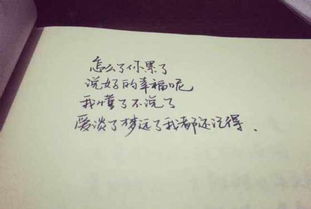 怎么了你累了
说好的幸福呢
我懂了不说了
爱淡了梦远了我都还记得.